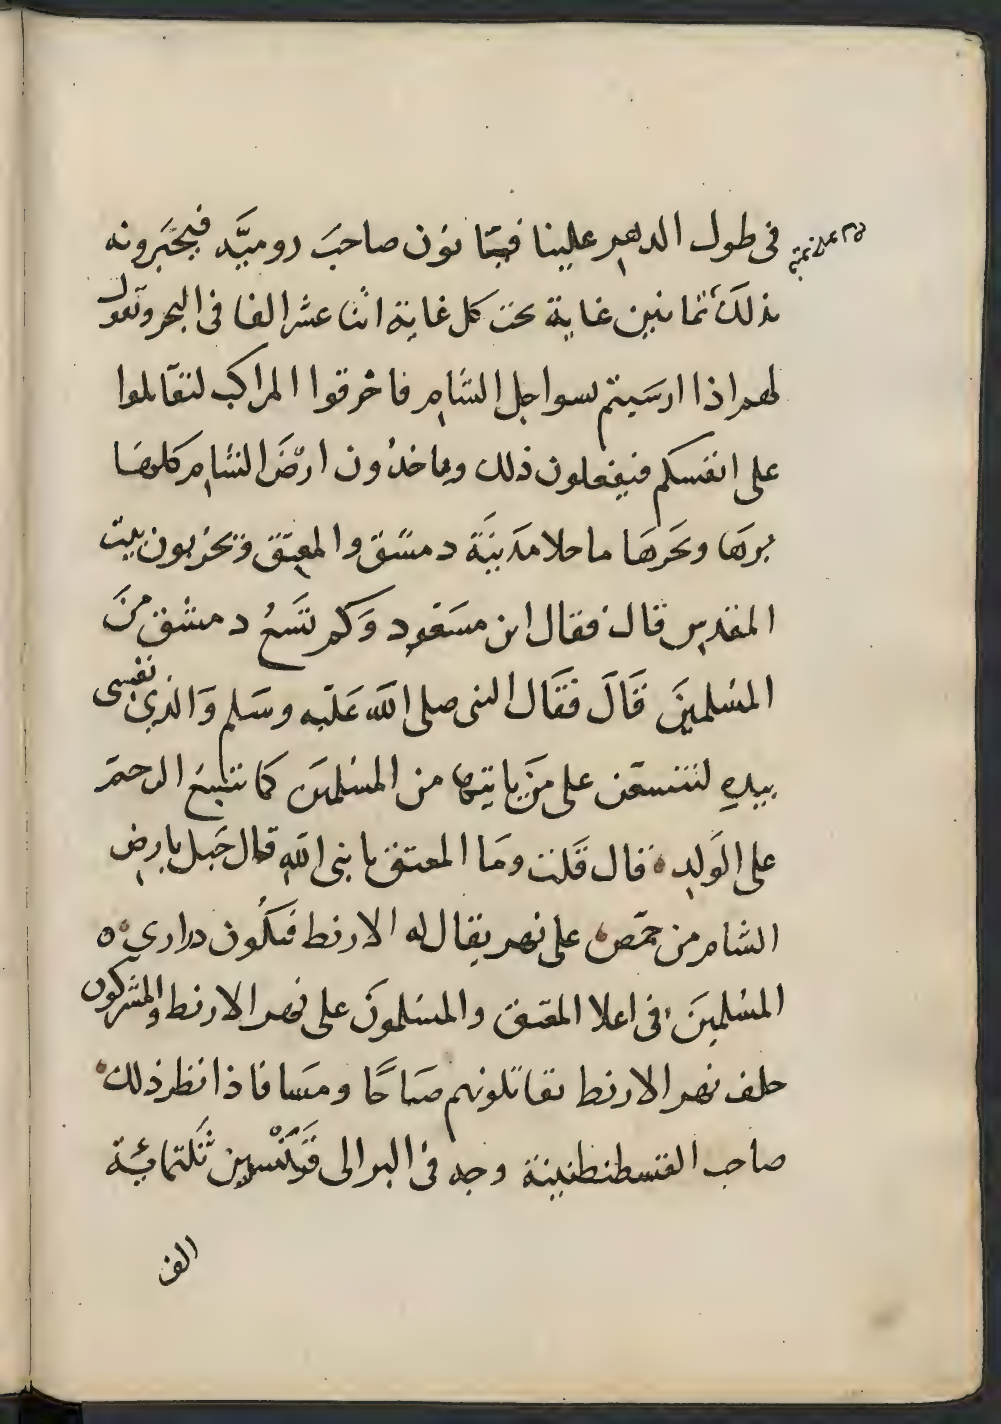 فى طول الدهر علينا فيتا تون صاحبَ روميَّه فيخبَرونه
بذلكَ ثمانين غاية تحت كل غاية اثنا عشر الفا فى البحر ويقول
لهم اذا ارسَيتم بسواحل الشام فاخرقوا المراكب لتقاتلوا
على انفسكم فيفعلون ذلك وياخذُون ارْضَ الشام كلها
برهَا وبحَرهَا ماخلا مدَينَة دمشق والمعتق ويخربون بيت
المقدس قال فقال ابن مسَعود وَكم تسَعُ دمشق منَ
المسْلمينَ قَالَ فقَال النبى صلى الله عَليه وسَلم وَالذي نفسى
بيدهِ لتتسعَن على منَ ياتيها من المسْلمين كما تتسع الرحم
على الوَلدِ قال قلت ومَا المعتق يا نبى الله قال جَبل بارض
الشام من حمَص على نهر يقال له الارنط فتكُون ذرارى ه
المسْلمينَ فى اعلا المعَتق والمسْلمونَ على نهر الارنط والمشركون
خلف نهر الارنط يقاتلونهم صباحًا ومسَا فاذا نظر ذلك
صاحب القسطنطنينة وجه فى البر الى قنسرين ثلثمائة
الف